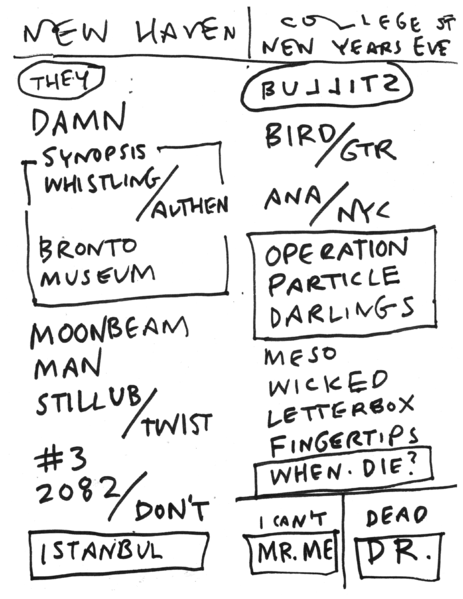 NEW HAVEN
COLLEGE ST
NEW YEARS EVE
THEY
DAMN
SYNOPSIS
WHISTLING/
AUTHEN
BRONTO
MUSEUM
MOONBEAM
MAN
STILLUB/
TWIST
#3
2082/
DON'T
ISTANBUL
BULLITS
BIRD/
GTR
ANA/
NYC
OPERATION
PARTICLE
DARLINGS
MESO
WICKED
LETTERBOX
FINGERTIPS
WHEN. DIE?
I CAN'T
MR. ME
DEAD
DR.